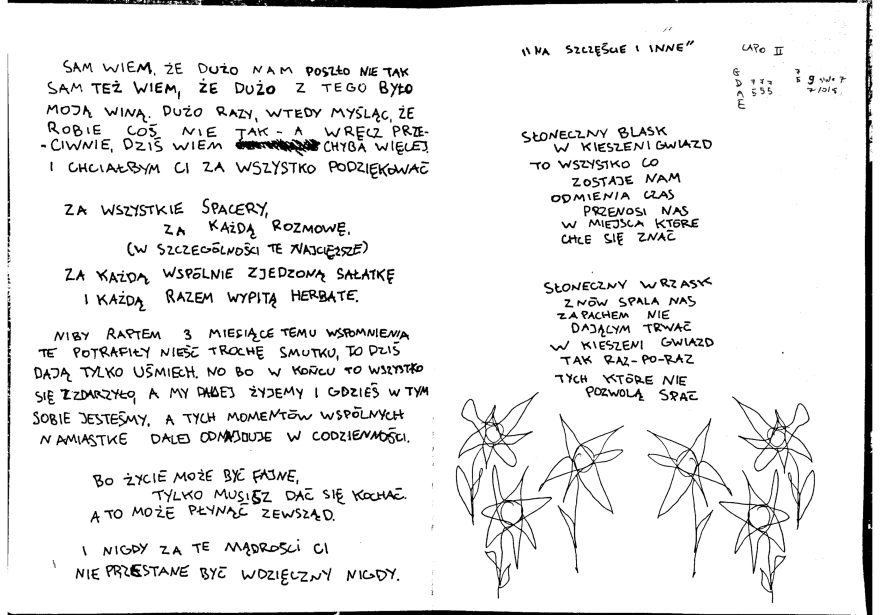 SAM WIEM, ŻE DUŻO NAM POSZŁO NIE TAK
SAM TEŻ WIEM, ŻE DUŻO Z TEGO BYŁO
MOJĄ WINĄ. DUŻO RAZY, WTEDY MYŚLĄC, ŻE
ROBIE COŚ NIE TAK - A WRĘCZ PRZE-
-CIWNIE, DZIŚ WIEM CHYBA WIĘCEJ
I CHCIAŁBYM CI ZA WSZYSTKO PODZIĘKOWAĆ
ZA WSZYSTKIE SPACERY,
ZA KAŻDĄ ROZMOWĘ.
(W SZCZEGÓLNOŚCI TE NAJCIĘŻSZE)
ZA KAŻDĄ WSPÓLNIE ZJEDZONĄ SAŁATKĘ
I KAŻDĄ RAZEM WYPITĄ HERBATE.
NIBY RAPTEM 3 MIESIĄCE TEMU WSPOMNIENIA
TE POTRAFIŁY NIEŚĆ TROCHĘ SMUTKU, TO DZIŚ
DAJĄ TYLKO UŚMIECH. NO BO W KOŃCU TO WSZYSTKO
SIĘ ZDARZYŁO, A MY DALEJ ŻYJEMY I GDZIEŚ W TYM
SOBIE JESTEŚMY, A TYCH MOMENTÓW WSPÓLNYCH
NAMIASTKE DALEJ ODNAJDUJE W CODZIENNOŚCI.
BO ŻYCIE MOŻE BYĆ FAJNE,
TYLKO MUSISZ DAĆ SIĘ KOCHAĆ.
A TO MOŻE PŁYNĄĆ ZEWSZĄD.
I NIGDY ZA TE MĄDROŚCI CI
NIE PRZESTANE BYĆ WDZIĘCZNY NIGDY.
"NA SZCZĘŚCIE I INNE"
CAPO II
G
D 777
A 555
E
SŁONECZNY BLASK
W KIESZENI GWIAZD
TO WSZYSTKO CO
ZOSTAJE NAM
ODMIENIA CZAS
PRZENOSI NAS
W MIEJSCA KTÓRE
CHCE SIĘ ZNAĆ
SŁONECZNY WRZASK
ZNÓW SPALA NAS
ZAPACHEM NIE
DAJĄCYM TRWAĆ
W KIESZENI GWIAZD
TAK RAZ-PO-RAZ
TYCH KTÓRE NIE
POZWOLĄ SPAĆ